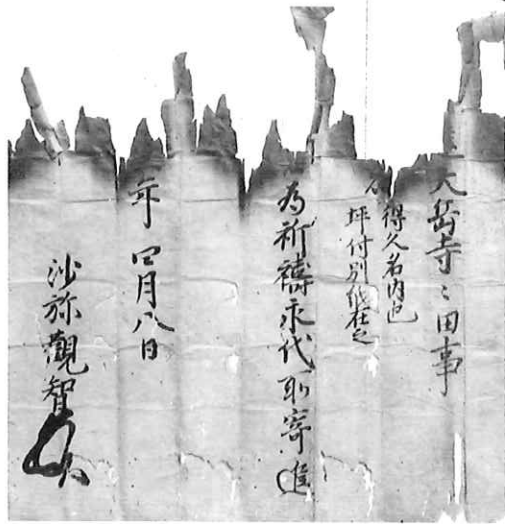 大岳寺〻田事
得久名内也
坪付別紙在之
為祈禱永代所寄進
年四月八日
沙弥觀智